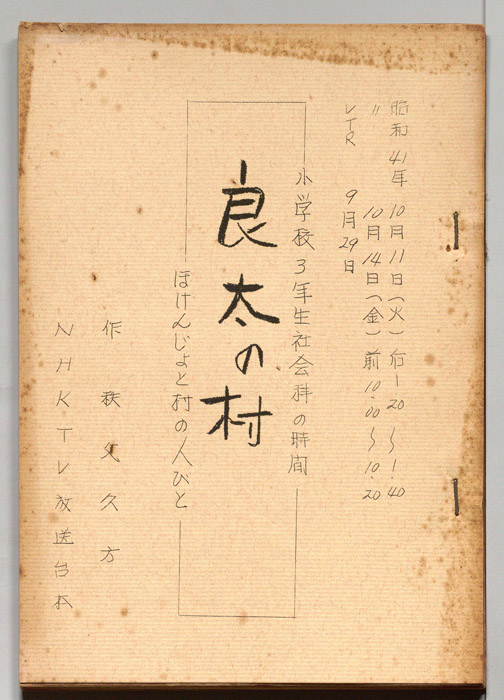 昭和41年 10月11日(火)后1.20~1.40
〃 10月14日(金)前10.00~10.20
VTR 9月29日
小学校3年生社会科の時間
良太の村
ほけんじょと村の人びと
作 秩父久方
NHKTV放送台本